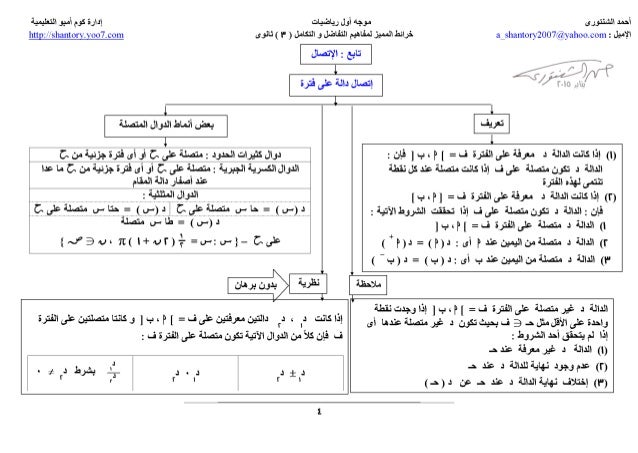 أحمد الشنتورى
موجه أول رياضيات
إدارة كوم أمبو التعليمية
الإميل : a_shantory2007@yahoo.com
خرائط المميز لمفاهيم التفاضل و التكامل ( ٣ ) ثانوى
http://shantory.yoo7.com
تابع : الإتصال
يناير ٢٠١٥
إتصال دالة على فترة
تعريف
(١) إذا كانت الدالة د معرفة على الفترة ف = ] أ ، ب [ فإن :
الدالة د تكون متصلة على ف إذا كانت متصلة عند كل نقطة
تنتمى لهذه الفترة
(٢) إذا كانت الدالة د معرفة على الفترة ف = [ أ ، ب ]
فإن : الدالة د تكون متصلة على ف إذا تحققت الشروط الآتية :
١) الدالة د متصلة على الفترة ف = ] أ ، ب [
٢) الدالة د متصلة من اليمين عند أ أى : د ( أ ) = د ( أ⁺ )
٣) الدالة د متصلة من اليمين عند ب أى : د ( ب ) = د ( ب⁻ )
بعض أنماط الدوال المتصلة
دوال كثيرات الحدود : متصلة على ح أو أى فترة جزئية من ح
الدوال الكسرية الجبرية : متصلة على ح أو أى فترة جزئية من ح ما عدا
عند أصفار دالة المقام
الدوال المثلثية :
د ( س ) = حا س متصلة على ح
د ( س ) = حتا س متصلة على ح
د ( س ) = طا س متصلة
على ح – { س : س = ١/٢ ( ٢ ن + ١ ) π ، ن ∈ ص }
ملاحظة
الدالة د غير متصلة على الفترة ف = [ أ ، ب ] إذا وجدت نقطة
واحدة على الأقل مثل حـ ∈ ف بحيث تكون د غير متصلة عندها أى
إذا لم يتحقق أحد الشروط :
(١) الدالة د غير معرفة عند حـ
(٢) عدم وجود نهاية للدالة د عند حـ
(٣) إختلاف نهاية الدالة د عند حـ عن د ( حـ )
نظرية
بدون برهان
إذا كانت د١ ، د٢ دالتين معرفتين على ف = [ أ ، ب ] و كانتا متصلتين على الفترة
ف فإن كلاً من الدوال الآتية تكون متصلة على الفترة ف :
د١ ± د٢
د١ ، د٢
د١/د٢ بشرط د٢ ≠ ٠
٤